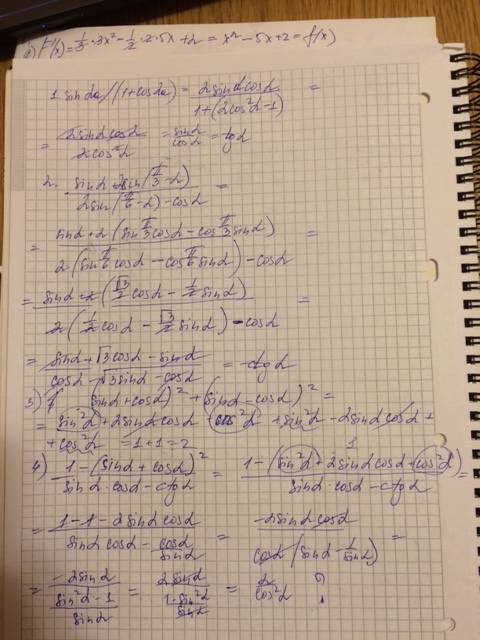 F'(x) = 1/3 · 3x² - 1/2 · 2 · 5x + 2 = x² - 5x + 2 = f(x)
1. sin2α/(1+cos2α) = 2sinα cosα / 1+(2cos²α-1) =
= 2sinα cosα / 2cos²α = sinα / cosα = tgα
2. sinα + 2sin(π/3 - α) / 2sin(π/6 - α) - cosα =
= sinα + 2(sin π/3 cosα - cos π/3 sinα) / 2(sin π/6 cosα - cos π/6 sinα) - cosα =
= sinα + 2(√3/2 cosα - 1/2 sinα) / 2(1/2 cosα - √3/2 sinα) - cosα =
= sinα + √3cosα - sinα / cosα - √3sinα - cosα = -ctgα
3) (sinα + cosα)² + (sinα - cosα)² =
= sin²α + 2sinα cosα + cos²α + sin²α - 2sinα cosα +
+ cos²α = 1+1 = 2
4) 1 - (sinα + cosα)² / sinα · cosα - ctgα = 1 - (sin²α + 2sinα cosα + cos²α) / sinα · cosα - ctgα =
= 1 - 1 - 2sinα cosα / sinα cosα - cosα/sinα = -2sinα cosα / cosα(sinα - 1/sinα) =
= -2sinα / sin²α - 1 / sinα = 2sinα / 1 - sin²α / sinα = 2 / cos²α ?